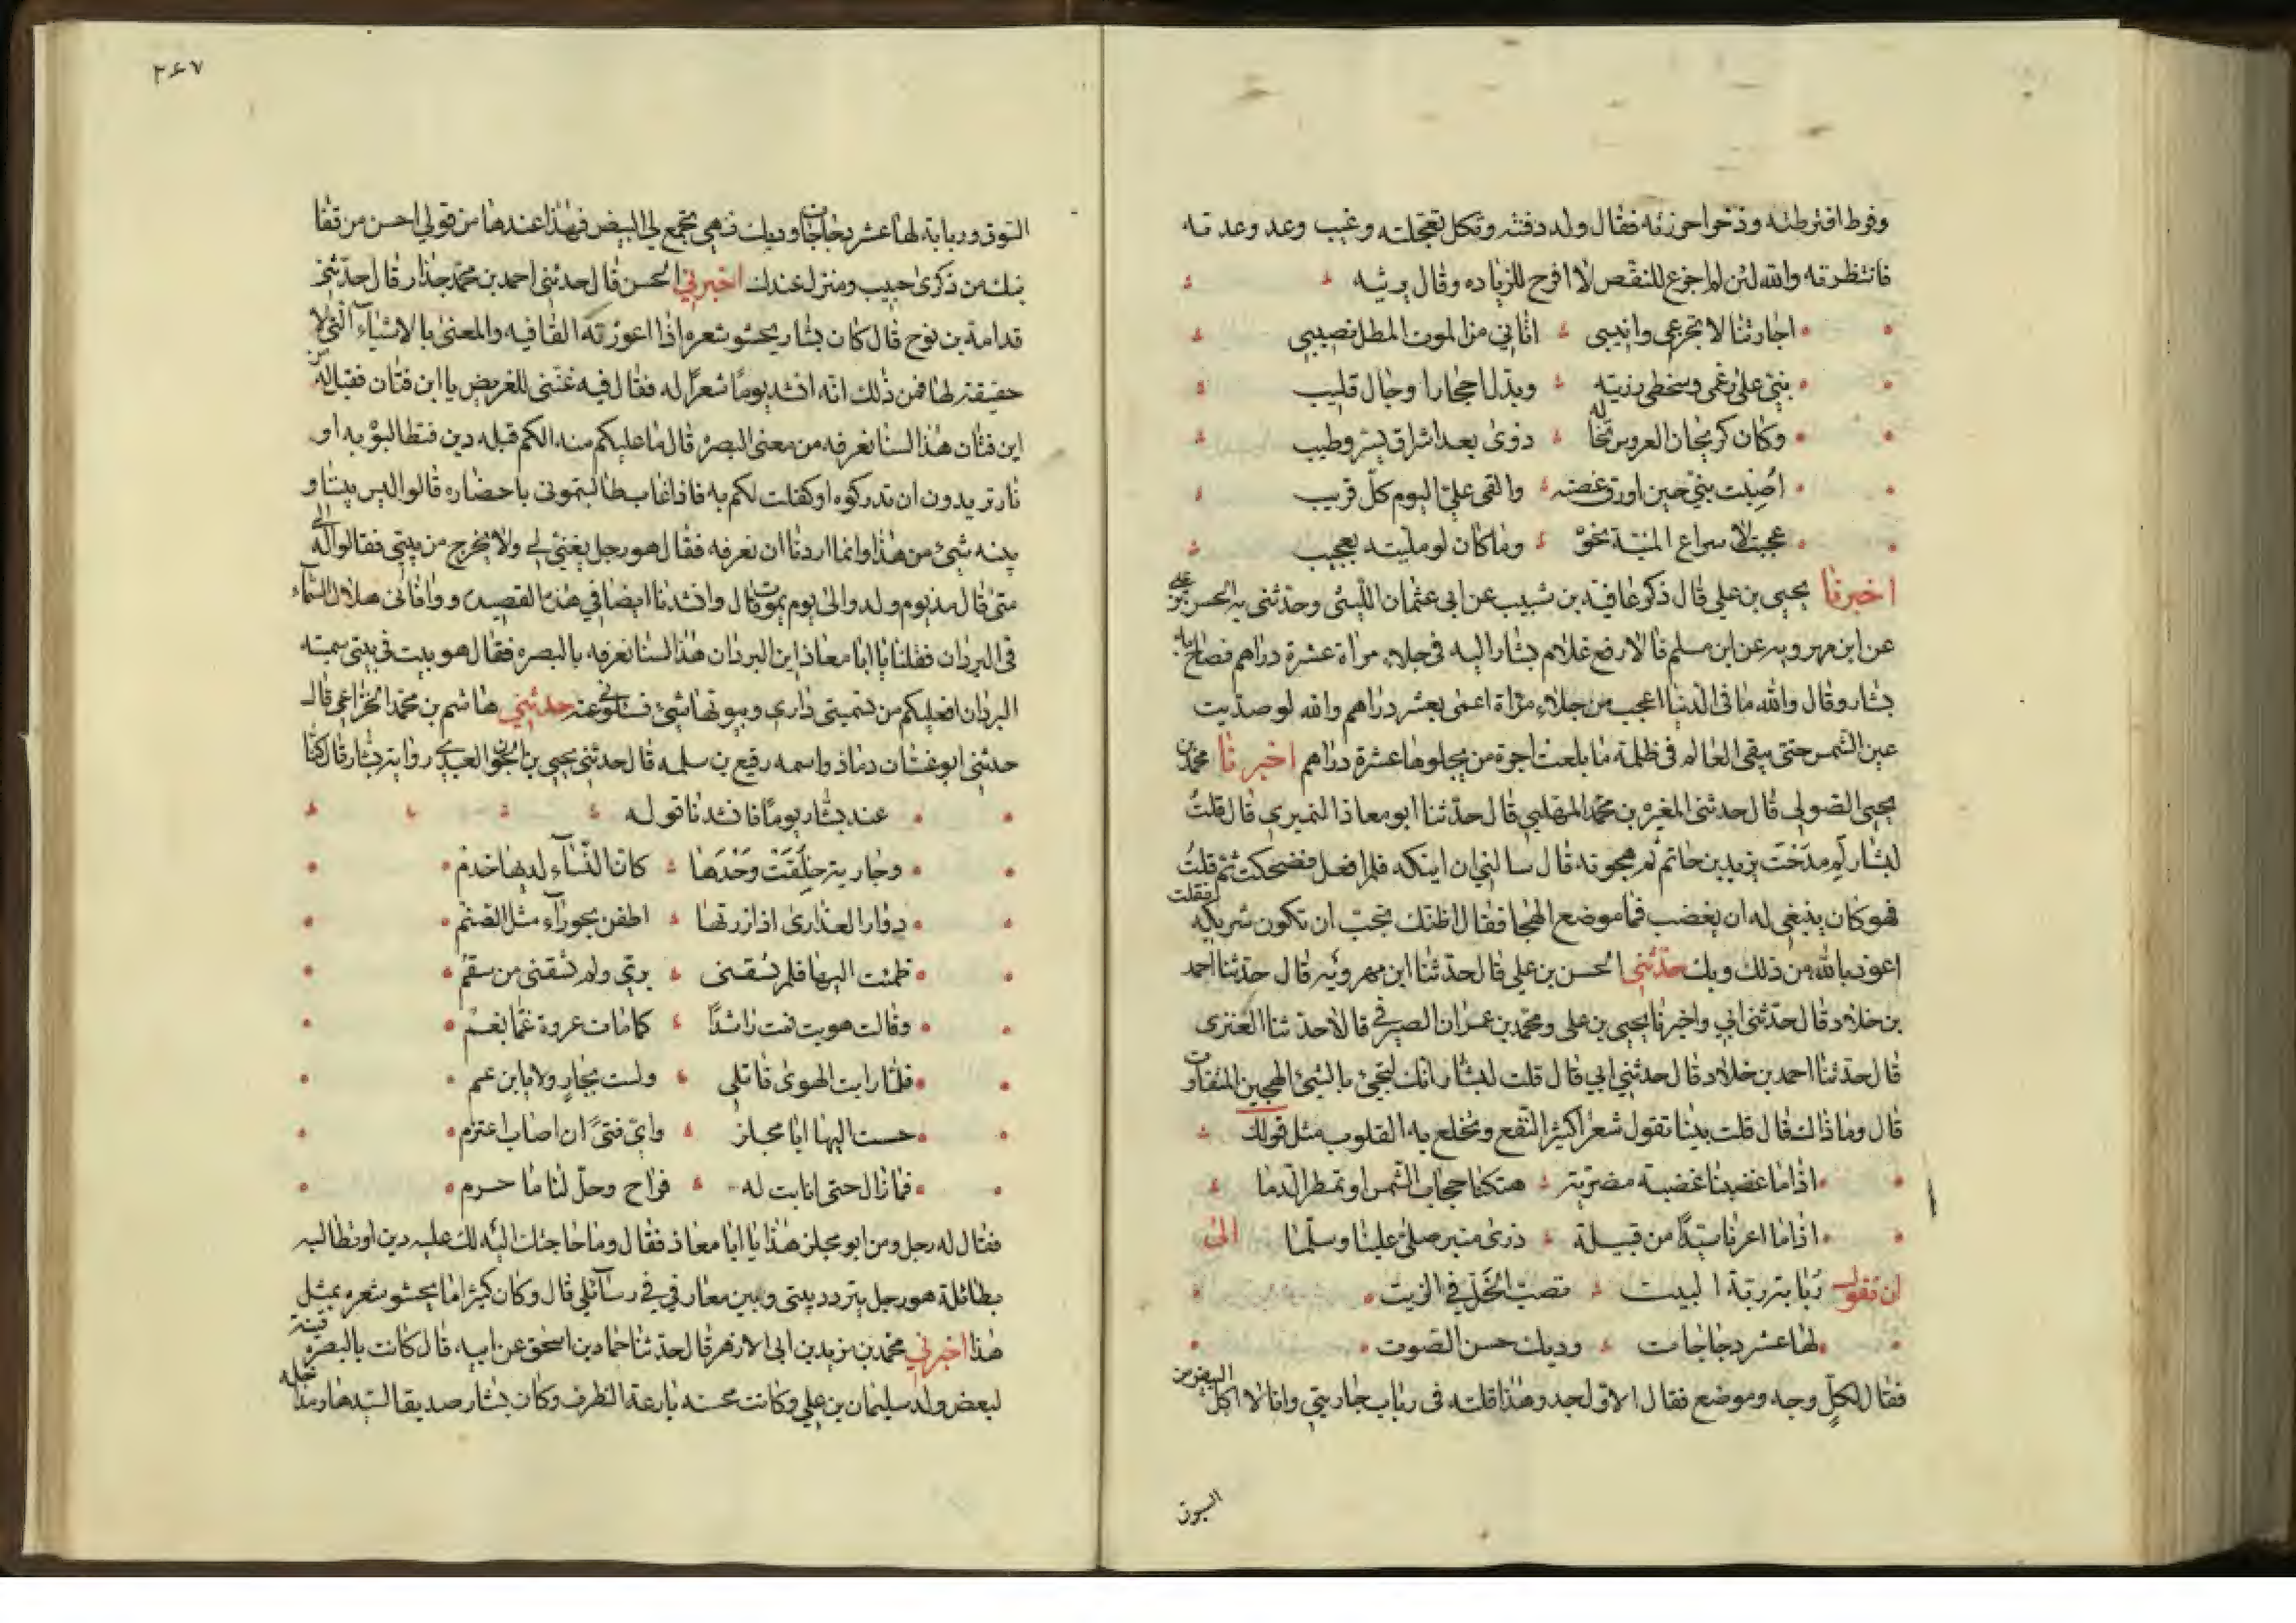 وفرط افترطته وذخر احرزته فقال ولد دفنته وثكل تعجلته وغيب وعد وعدته
فانتظرته والله لئن لم اجزع للنقص لا افرح للزياده وقال يرثيه
اجارتنا لا تجزعي وانيبي اتاني من الموت المطل نصيبي
بنيي على رغمي وسخطي رزيته وبدل احجارا وجال قليب
وكان كريحان العروس تخاله ذوى بعد اشراق يسر وطيب
اصبت بنيي حين اورق غصنه والقى علي اليوم كل قريب
عجبت لاسراع المنية نحوه وما كان لو مليته بعجيب
اخبرنا يحيى بن علي قال ذكر عافية بن شبيب عن ابي عثمان الليثي وحدثني به الحسن بن علي
عن ابن مهرويه عن ابن مسلم قالا رفع غلام بشار اليه في جلاء مرآة عشرة دراهم فصاح به
بشار وقال والله ما في الدنيا اعجب من جلاء مرآة اعمى بعشر دراهم والله لو صديت
عين الشمس حتى يبقى العالم في ظلمة ما بلغت اجرة من يجلوها عشرة دراهم اخبرنا محمد بن
يحيى الصولي قال حدثني المغيره بن محمد المهلبي قال حدثنا ابو معاذ النميري قال قلت
لبشار لم مدحت يزيد بن حاتم ثم هجوته قال سالني ان انيكه فلم افعل فضحكت ثم قلت
فهو كان ينبغي له ان يغضب فما موضع الهجا فقال اظنك تحب ان تكون شريكه فقلت
اعوذ بالله من ذلك ويلك حدثني الحسن بن علي قال حدثنا ابن مهرويه قال حدثنا احمد
بن خلاد قال حدثني ابي واخبرنا يحيى بن علي ومحمد بن عمران الصيرفي قالا حدثنا العنزى
قال حدثنا احمد بن خلاد قال حدثني ابي قال قلت لبشار انك لتجئ بالشئ الهجين المتفاوت
قال وما ذاك قال قلت بينا تقول شعرا كثير النقع وتخلع به القلوب مثل قولك
اذا ما غضبنا غضبة مضرية هتكنا حجاب الشمس او تمطر الدما
اذا ما اعرنا سيدا من قبيلة ذرى منبر صلى علينا وسلما الى
ان تقول ربابة ربة البيت تصب الخل في الزيت
لها عشر دجاجات وديك حسن الصوت
فقال لكل وجه وموضع فقال الاول جد وهذا قلته في رباب جاريتي وانا لا اكل البيض من
السوق
٢٤٧
السوق وربابة لها عشر دجاجات وديك فهي تجمع لي البيض فهذا عندها من قولي احسن من قفا
نبك من ذكرى حبيب ومنزل عندك اخبرني الحسن قال حدثني احمد بن محمد جدار قال حدثني
قدامة بن نوح قال كان بشار يحشو شعره اذا اعوزته القافيه والمعنى بالاشياء التي لا
حقيقة لها فمن ذلك انه انشد يوما شعرا له فقال فيه غنني للغريض يا ابن قنان فقيل له من
ابن قنان هذا لسنا نعرفه من مغني البصره قال ما عليكم منه الكم قبله دين فتطالبوه به او
ثار تريدون ان تدركوه او كفلت لكم به فاذا غاب طالبتموني باحضاره قالوا ليس بيننا و
بينه شئ من هذا وانما اردنا ان نعرفه فقال هو رجل يغني لي ولا يخرج من بيتي فقالوا له الى
متى قال مذ يوم ولد والى يوم يموت قال وانشدنا ايضا في هذه القصيده ووافاني هلال السماء
في البردان فقلنا يا ابا معاذ اين البردان هذا لسنا نعرفه بالبصره فقال هو بيت في بيتي سميته
البردان افعليكم من تسميتي داري وبيوتها شئ فتسئلوني عنه حدثني هاشم بن محمد الخزاعي قال
حدثني ابو غسان دماذ واسمه رفيع بن سلمه قال حدثني يحيى بن الجون العبدي راوية بشار قال كنا
عند بشار يوما فانشدنا قوله
وجارية خلقت وحدها كان النساء لديها خدم
دوار العذارى اذا زرتها اطفن بحوراء مثل الصنم
ظمئت اليها فلم تسقني بري ولم تشفني من سقم
وقالت هويت فمت راشدا كما مات عروة غما بغم
فلما رايت الهوى قاتلي ولست بجار ولا بابن عم
دسست اليها ابا مجلز واي فتى ان اصاب اعتزم
فما زال حتى انابت له فراح وحل لنا ما حرم
فقال له رجل ومن ابو مجلز هذا يا ابا معاذ فقال وما حاجتك اليه لك عليه دين او تطالبه
بطائلة هو رجل يتردد بيني وبين معارفي في رسائلي قال وكان كثيرا ما يحشو شعره بمثل
هذا اخبرني محمد بن مزيد بن ابي الازهر قال حدثنا حماد بن اسحق عن ابيه قال كانت بالبصره قينة
لبعض ولد سليمان بن علي وكانت محسنه بارعة الظرف وكان بشار صديقا لسيدها ومداحا له